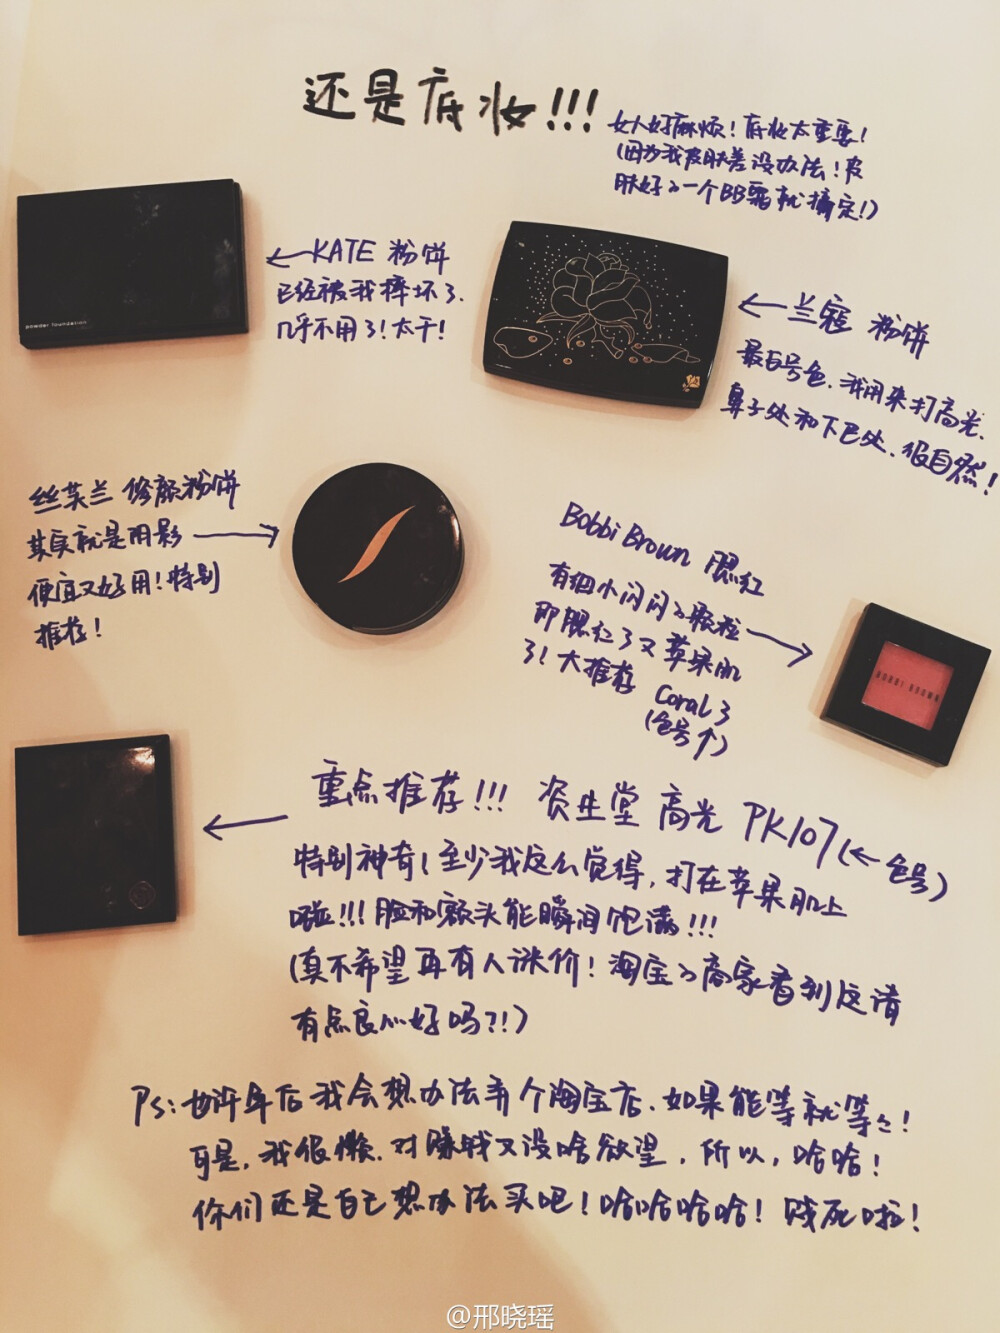 还是底妆!!!
女人好麻烦!底妆太重要!
(因为我皮肤差没办法!皮
肤好的一个BB霜就搞定!)
←KATE 粉饼
已经被我摔坏了.
几乎不用了!太干!
powder foundation
←兰寇 粉饼
最白号色.我用来打高光.
鼻子处和下巴处.很自然!
丝芙兰 修颜粉饼
其实就是阴影→
便宜又好用!特别
推荐!
Bobbi Brown 腮红
有细小闪闪的颗粒→
即腮红了又苹果肌
了!大推荐 Coral 3
(色号↑)
BOBBI BROWN
←重点推荐!!! 资生堂 高光 PK107(←色号)
特别神奇!至少我这么觉得,打在苹果肌上
啦!!!脸和额头能瞬间饱满!!!
(真不希望再有人涨价!淘宝的商家看到这请
有点良心好吗?!)
Ps:也许年后我会想办法弄个淘宝店.如果能等就等等!
可是,我很懒.对赚钱又没啥欲望,所以,哈哈!
你们还是自己想办法买吧!哈哈哈哈!贱死啦!
@邢晓瑶